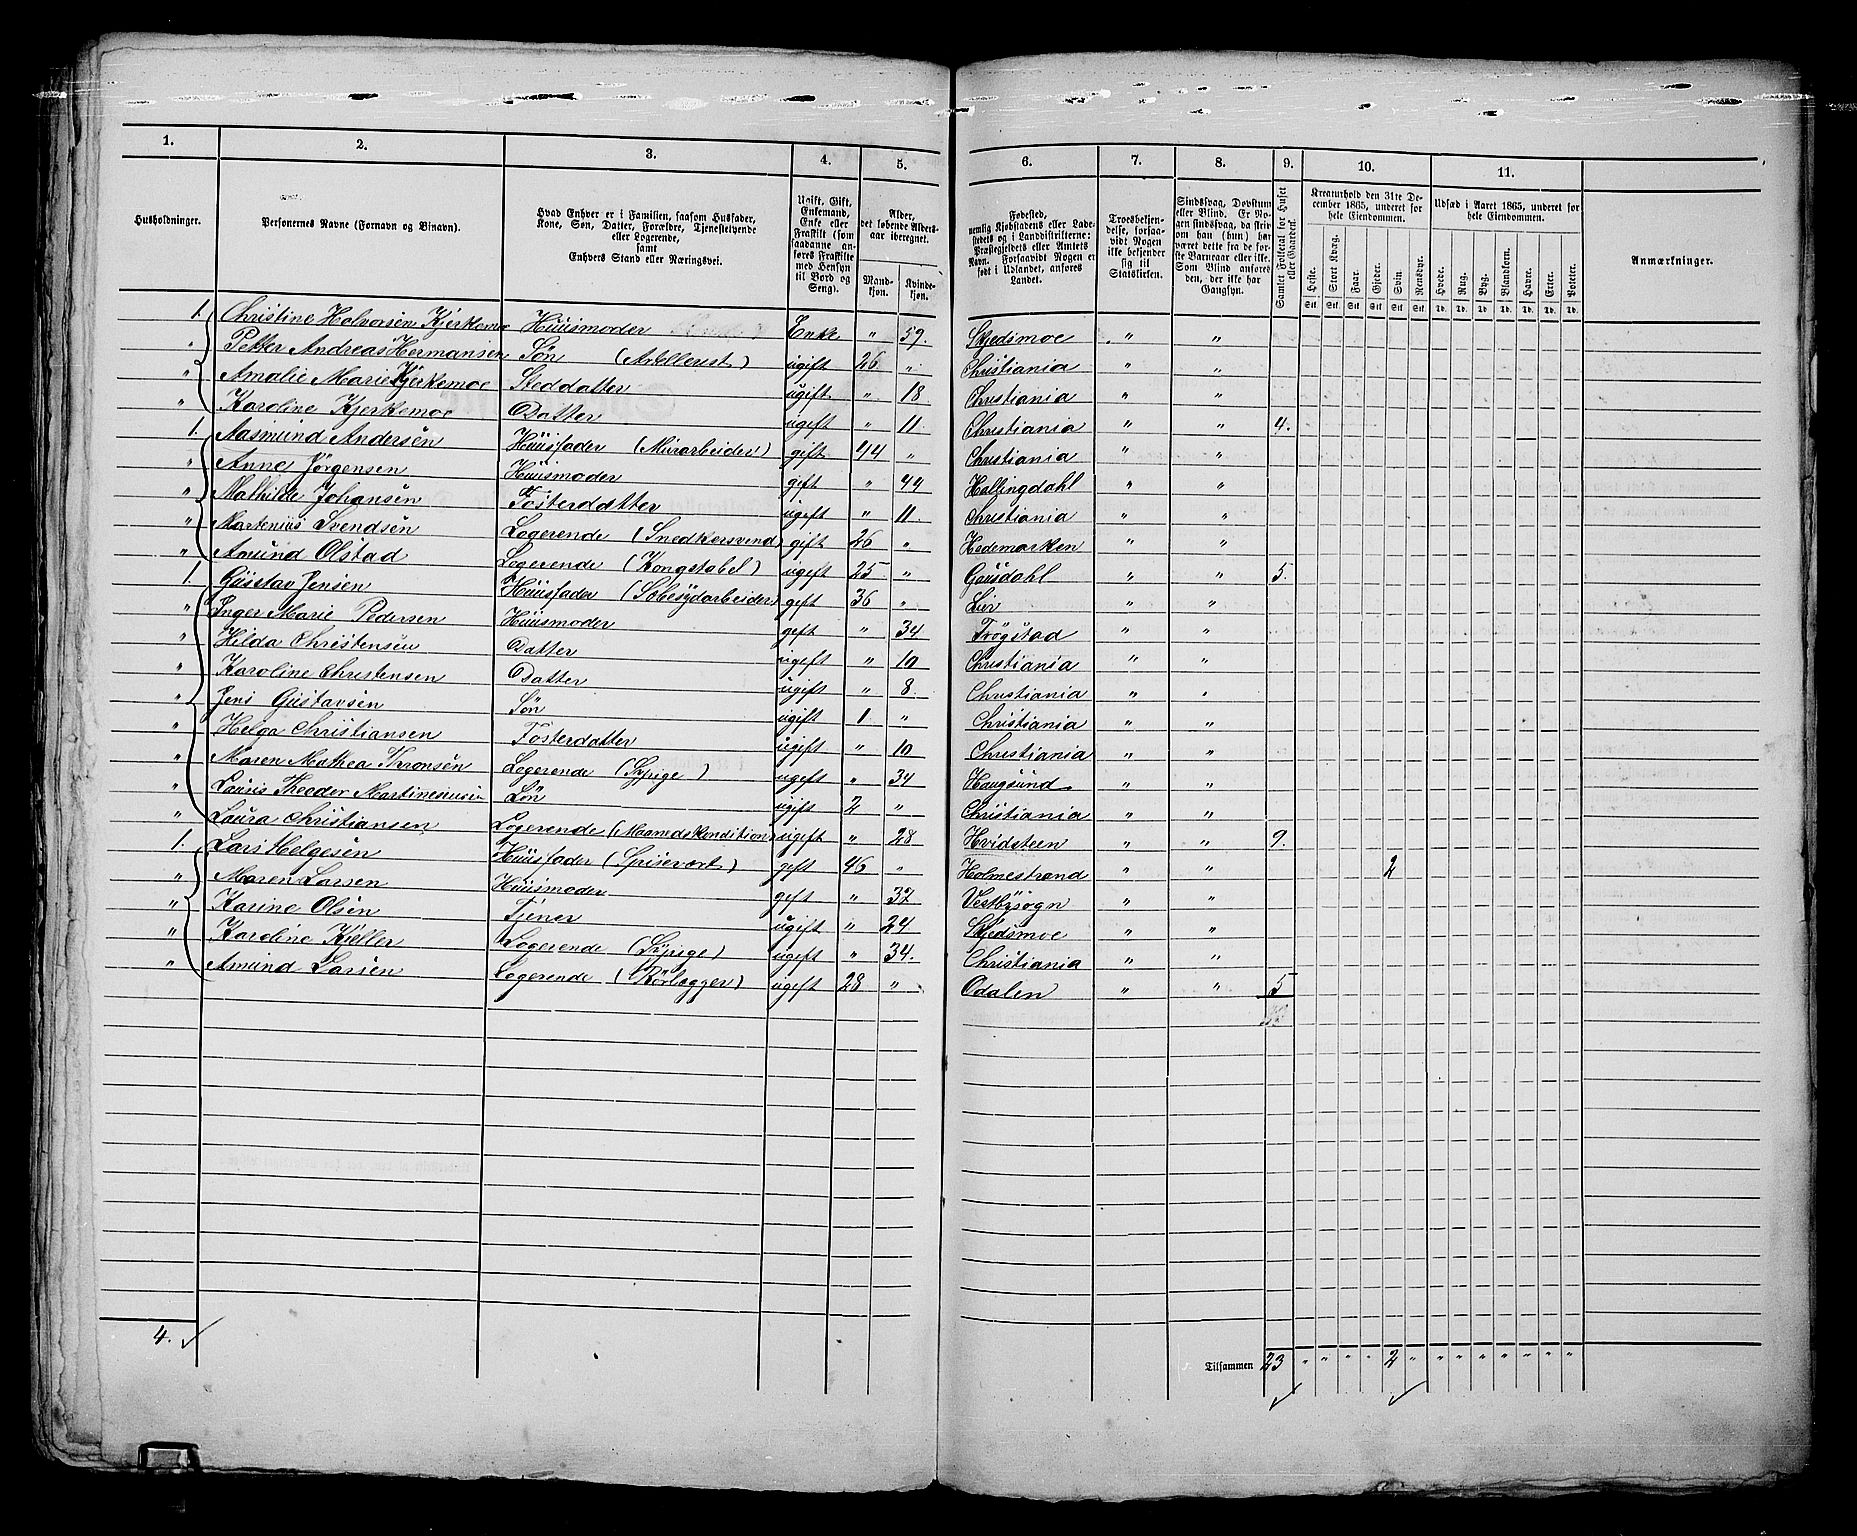 1. 2. 3. 4. 5. 6. 7. 8. 9. 10. 11.
Husholdninger.
Personernes Navne (Fornavn og Binavn).
Hvad Enhver er i Familien, saasom Husfader, Kone, Søn, Datter, Forældre, Tjenestetyende eller Logerende, samt Enhvers Stand eller Næringsvei.
Ugift, Gift, Enkemand, Enke eller Fraskilt (som saadanne anføres Fraskilte med Hensyn til Bord og Seng).
Alder, det løbende Aldersaar iberegnet.
Mandkjøn. Kvindekjøn.
Fødested, nemlig Kjøbstadens eller Ladestedets og i Landdistrikterne: Præstegjeldets eller Amtets Navn. Forsaavidt Nogen er født i Udlandet, anføres Landet.
Troesbekjendelse, forsaavidt Nogen ikke bekjender sig til Statskirken.
Sindssvag, Døvstum eller Blind. Er Nogen sindssvag, da skrives om han (hun) har været dette fra de første Barneaar eller ikke. Som Blind anføres den, der ikke har Gangsyn.
Samlet Folketal for Huset eller Gaarden.
Kreaturhold den 31te December 1865, underet for hele Eiendommen.
Heste. Stort Kvæg. Faar. Gjeder. Svin. Rensdyr.
Stk. Stk. Stk. Stk. Stk. Stk.
Udsæd i Aaret 1865, underet for hele Eiendommen.
Hvede. Rug. Byg. Blandkorn. Havre. Erter. Poteter.
Td. Td. Td. Td. Td. Td. Td.
Anmærkninger.
1. Christine Halvorsen Kjerkemoe Huusmoder Enke " 59. Skjedsmoe " "
" Petter Andreas Hermansen Søn (Artillerist) ugift 26 " Christiania " "
" Amalie Marie Kjerkemoe Steddatter ugift " 18. Christiania " "
" Karoline Kjerkemoe Datter ugift " 11. Christiania " " 4.
1. Aasmund Andersen Huusfader (Murarbeider) gift 44 " Christiania " "
" Anne Jørgensen Huusmoder gift " 44 Hallingdahl " "
" Mathilde Johansen Fosterdatter ugift " 11. Christiania " "
" Martenius Svendsen Logerende (Snedkersvend) gift 26 " Hedemarken " "
" Amund Olstad Logerende (Kongstabel) ugift 25 " Gausdahl " " 5.
1. Gustav Jensen Huusfader gift 36 " Lier " "
" Inger Marie Pedersen Huusmoder gift " 34 Trøgstad " "
" Hilda Christensen Datter ugift " 10 Christiania " "
" Karoline Christensen Datter ugift " 8. Christiania " "
" Jens Gustavsen Søn ugift 1 " Christiania " "
" Helga Christiansen Fosterdatter ugift " 10 Christiania " "
" Maren Mathea Thronsen Logerende (Sypige) ugift " 34 Haugsund " "
" Lauris Theodor Søn ugift 2 " Christiania " "
" Laura Christiansen Logerende (Maanedskondition) ugift " 28 Hvidsteen " " 9.
1. Lars Helgesen Huusfader (Spisevært) gift 46 " Holmestrand " " 2
" Maren Larsen Huusmoder gift " 37 Vestbysogn " "
" Karine Olsen Tjener ugift " 24 Skjedsmoe " "
" Karoline Kieller Logerende (Sypige) ugift " 34. Christiania " "
" Amund Larsen Logerende (Rørlægger) ugift 28 " Odalen " " 5
4. ✓
Tilsammen 23 " " " " 2 " " " " " " " "
✓ ✓